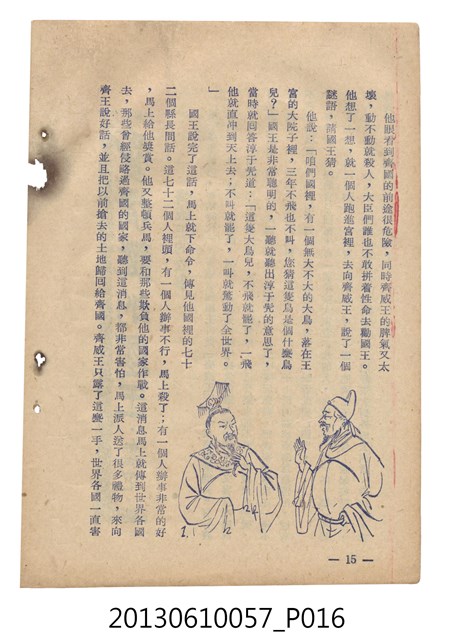 他眼看到齊國的前途很危險，同時齊威王的脾氣又太
壞，動不動就殺人，大臣們誰也不敢拼着性命去勸國王。
他想了一想，就一個人跑進宮裡，去向齊威王，說了一個
謎語，請國王猜。
他說：「咱們國裡，有一個無大不大的大鳥，落在王
宮的大院子裡，三年不飛也不叫，您猜這隻鳥是個什麼鳥
兒？」國王是非常聰明的，一聽就聽出淳于髡的意思了，
當時就回答淳于髡道：「這隻大鳥兒，不飛就罷了，一飛
他就直冲到天上去；不叫就罷了，一叫就驚動了全世界。
」
國王說完了這話，馬上就下命令，傳見他國裡的七十
二個縣長問話。這七十二個人裡頭，有一個人辦事不行，馬上殺了；有一個人辦事非常的好
，馬上給他獎賞。他又整頓兵馬，要和那些欺負他的國家作戰。這消息馬上就傳到世界各國
去，那些曾經侵略過齊國的國家，聽到這消息，都非常害怕，馬上派人送了很多禮物，來向
齊王說好話，並且把以前搶去的土地歸回給齊國。齊威王只露了這麼一手，世界各國一直害
— 15 —
20130610057_P016